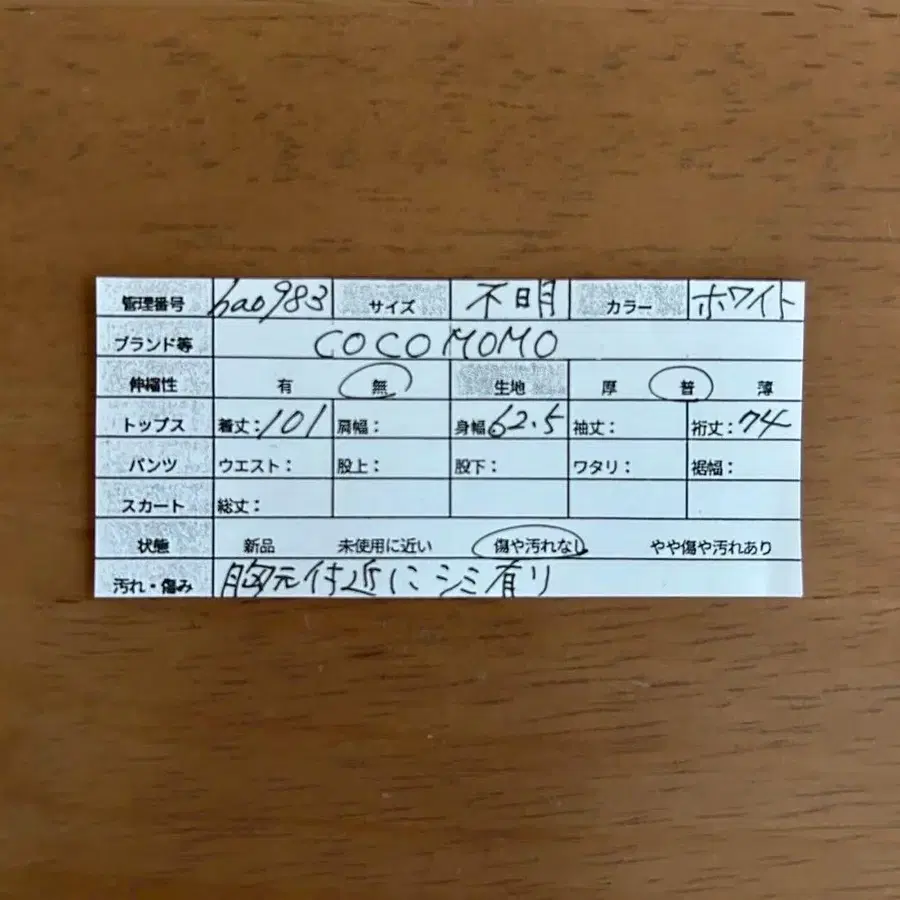 管理番号 hao983 サイズ 不明 カラー ホワイト
ブランド等 COCOMOMO
伸縮性 有 無 生地 厚 普 薄
トップス 着丈:101 肩幅: 身幅62.5 袖丈: 裄丈:74
パンツ ウエスト: 股上: 股下: ワタリ: 裾幅:
スカート 総丈:
状態 新品 未使用に近い 傷や汚れなし やや傷や汚れあり
汚れ・傷み 胸元付近にシミ有り